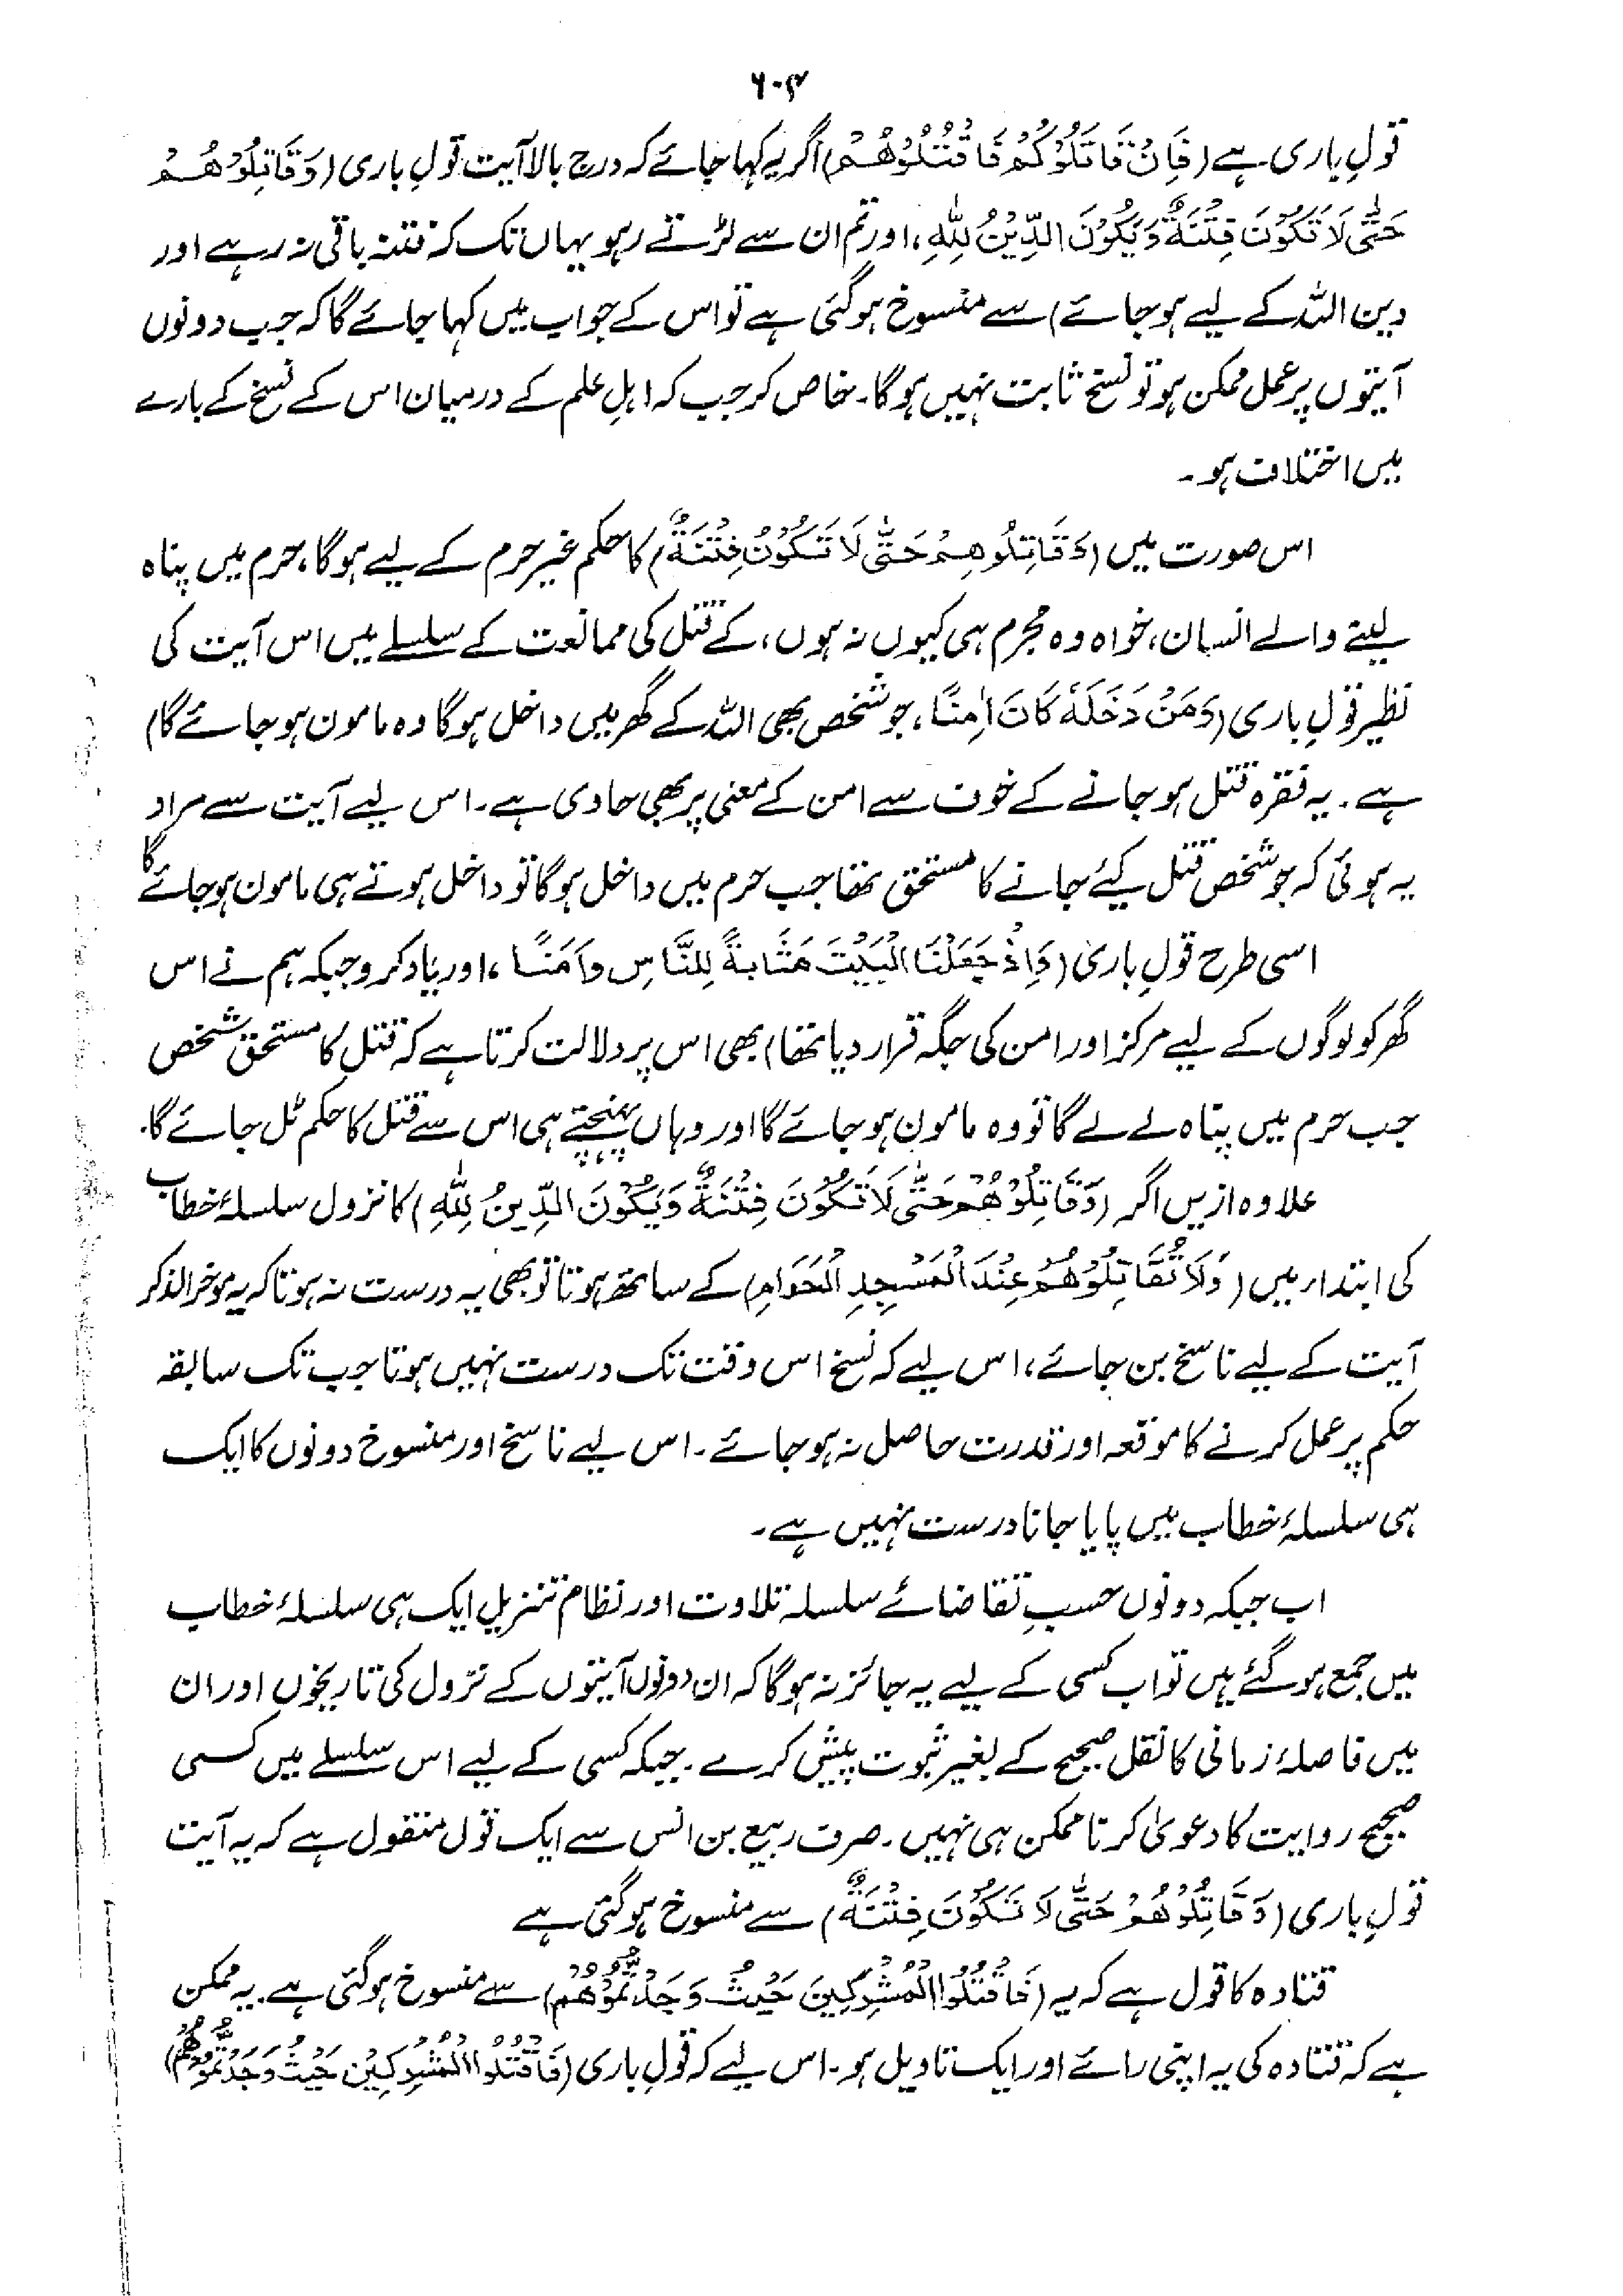 ۶۰۴
قولِ باری ہے (فَاِنْ قَاتَلُوْكُمْ فَاقْتُلُوْهُمْ) اگر یہ کہا جائے کہ درج بالا آیت قولِ باری (وَقَاتِلُوْهُمْ
حَتّٰی لَا تَكُوْنَ فِتْنَةٌ وَيَكُوْنَ الدِّيْنُ لِلّٰهِ، اور تم ان سے لڑتے رہو یہاں تک کہ فتنہ باقی نہ رہے اور
دین اللہ کے لیے ہو جائے) سے منسوخ ہو گئی ہے تو اس کے جواب میں کہا جائے گا کہ جب دونوں
آیتوں پر عمل ممکن ہو تو نسخ ثابت نہیں ہوگا۔ خاص کر جب کہ اہلِ علم کے درمیان اس کے نسخ کے بارے
میں اختلاف ہو۔
اس صورت میں (وَقَاتِلُوهِمْ حَتّٰی لَا تَكُوْنُ فِتْنَةٌ) کا حکم غیر حرم کے لیے ہوگا، حرم میں پناہ
لینے والے انسان، خواہ وہ مجرم ہی کیوں نہ ہوں، کے قتل کی ممانعت کے سلسلے میں اس آیت کی
نظیر قولِ باری (وَمَنْ دَخَلَهٗ كَانَ اٰمِنًا، جو شخص بھی اللہ کے گھر میں داخل ہوگا وہ مامون ہو جائے گا)
ہے۔ یہ فقرہ قتل ہو جانے کے خوف سے امن کے معنی پر بھی حاوی ہے۔ اس لیے آیت سے مراد
یہ ہوئی کہ جو شخص قتل کیئے جانے کا مستحق تھا جب حرم میں داخل ہوگا تو داخل ہوتے ہی مامون ہو جائے گا
اسی طرح قولِ باری (وَاِذْ جَعَلْنَا الْبَيْتَ مَثَابَةً لِلنَّاسِ وَاَمَنًا، اور یاد کرو جبکہ ہم نے اس
گھر کو لوگوں کے لیے مرکز اور امن کی جگہ قرار دیا تھا) بھی اس پر دلالت کرتا ہے کہ قتل کا مستحق شخص
جب حرم میں پناہ لے لے گا تو وہ مامون ہو جائے گا اور وہاں پہنچتے ہی اس سے قتل کا حکم ٹل جائے گا۔
علاوہ ازیں اگر (وَقَاتِلُوْهُمْ حَتّٰی لَا تَكُوْنَ فِتْنَةٌ وَيَكُوْنَ الدِّينُ لِلّٰهِ) کا نزول سلسلۂ خطاب
کی ابتداء میں (وَلَا تُقَاتِلُوْهُمْ عِنْدَ الْمَسْجِدِ الْحَرَامِ) کے ساتھ ہوتا تو بھی یہ درست نہ ہوتا کہ یہ موخر الذکر
آیت کے لیے ناسخ بن جائے، اس لیے کہ نسخ اس وقت تک درست نہیں ہوتا جب تک سابقہ
حکم پر عمل کرنے کا موقعہ اور قدرت حاصل نہ ہو جائے۔ اس لیے ناسخ اور منسوخ دونوں کا ایک
ہی سلسلۂ خطاب میں پایا جانا درست نہیں ہے۔
اب جبکہ دونوں حسبِ تقاضائے سلسلہ تلاوت اور نظام تنزیل ایک ہی سلسلۂ خطاب
میں جمع ہو گئے ہیں تو اب کسی کے لیے یہ جائز نہ ہوگا کہ ان دونوں آیتوں کے نزول کی تاریخوں اور ان
میں فاصلۂ زمانی کا نقل صحیح کے بغیر ثبوت پیش کرے۔ جبکہ کسی کے لیے اس سلسلے میں کسی
صحیح روایت کا دعویٰ کرنا ممکن ہی نہیں۔ صرف ربیع بن انس سے ایک قول منقول ہے کہ یہ آیت
قولِ باری (وَقَاتِلُوْهُمْ حَتّٰی لَا تَكُوْنَ فِتْنَةٌ) سے منسوخ ہو گئی ہے
قتادہ کا قول ہے کہ یہ (فَاقْتُلُوا الْمُشْرِكِيْنَ حَيْثُ وَجَدْتُّمُوْهُمْ) سے منسوخ ہو گئی ہے۔ یہ ممکن
ہے کہ قتادہ کی یہ اپنی رائے اور ایک تاویل ہو۔ اس لیے کہ قولِ باری (فَاقْتُلُوا الْمُشْرِكِيْنَ حَيْثُ وَجَدْتُّمُوْهُمْ)